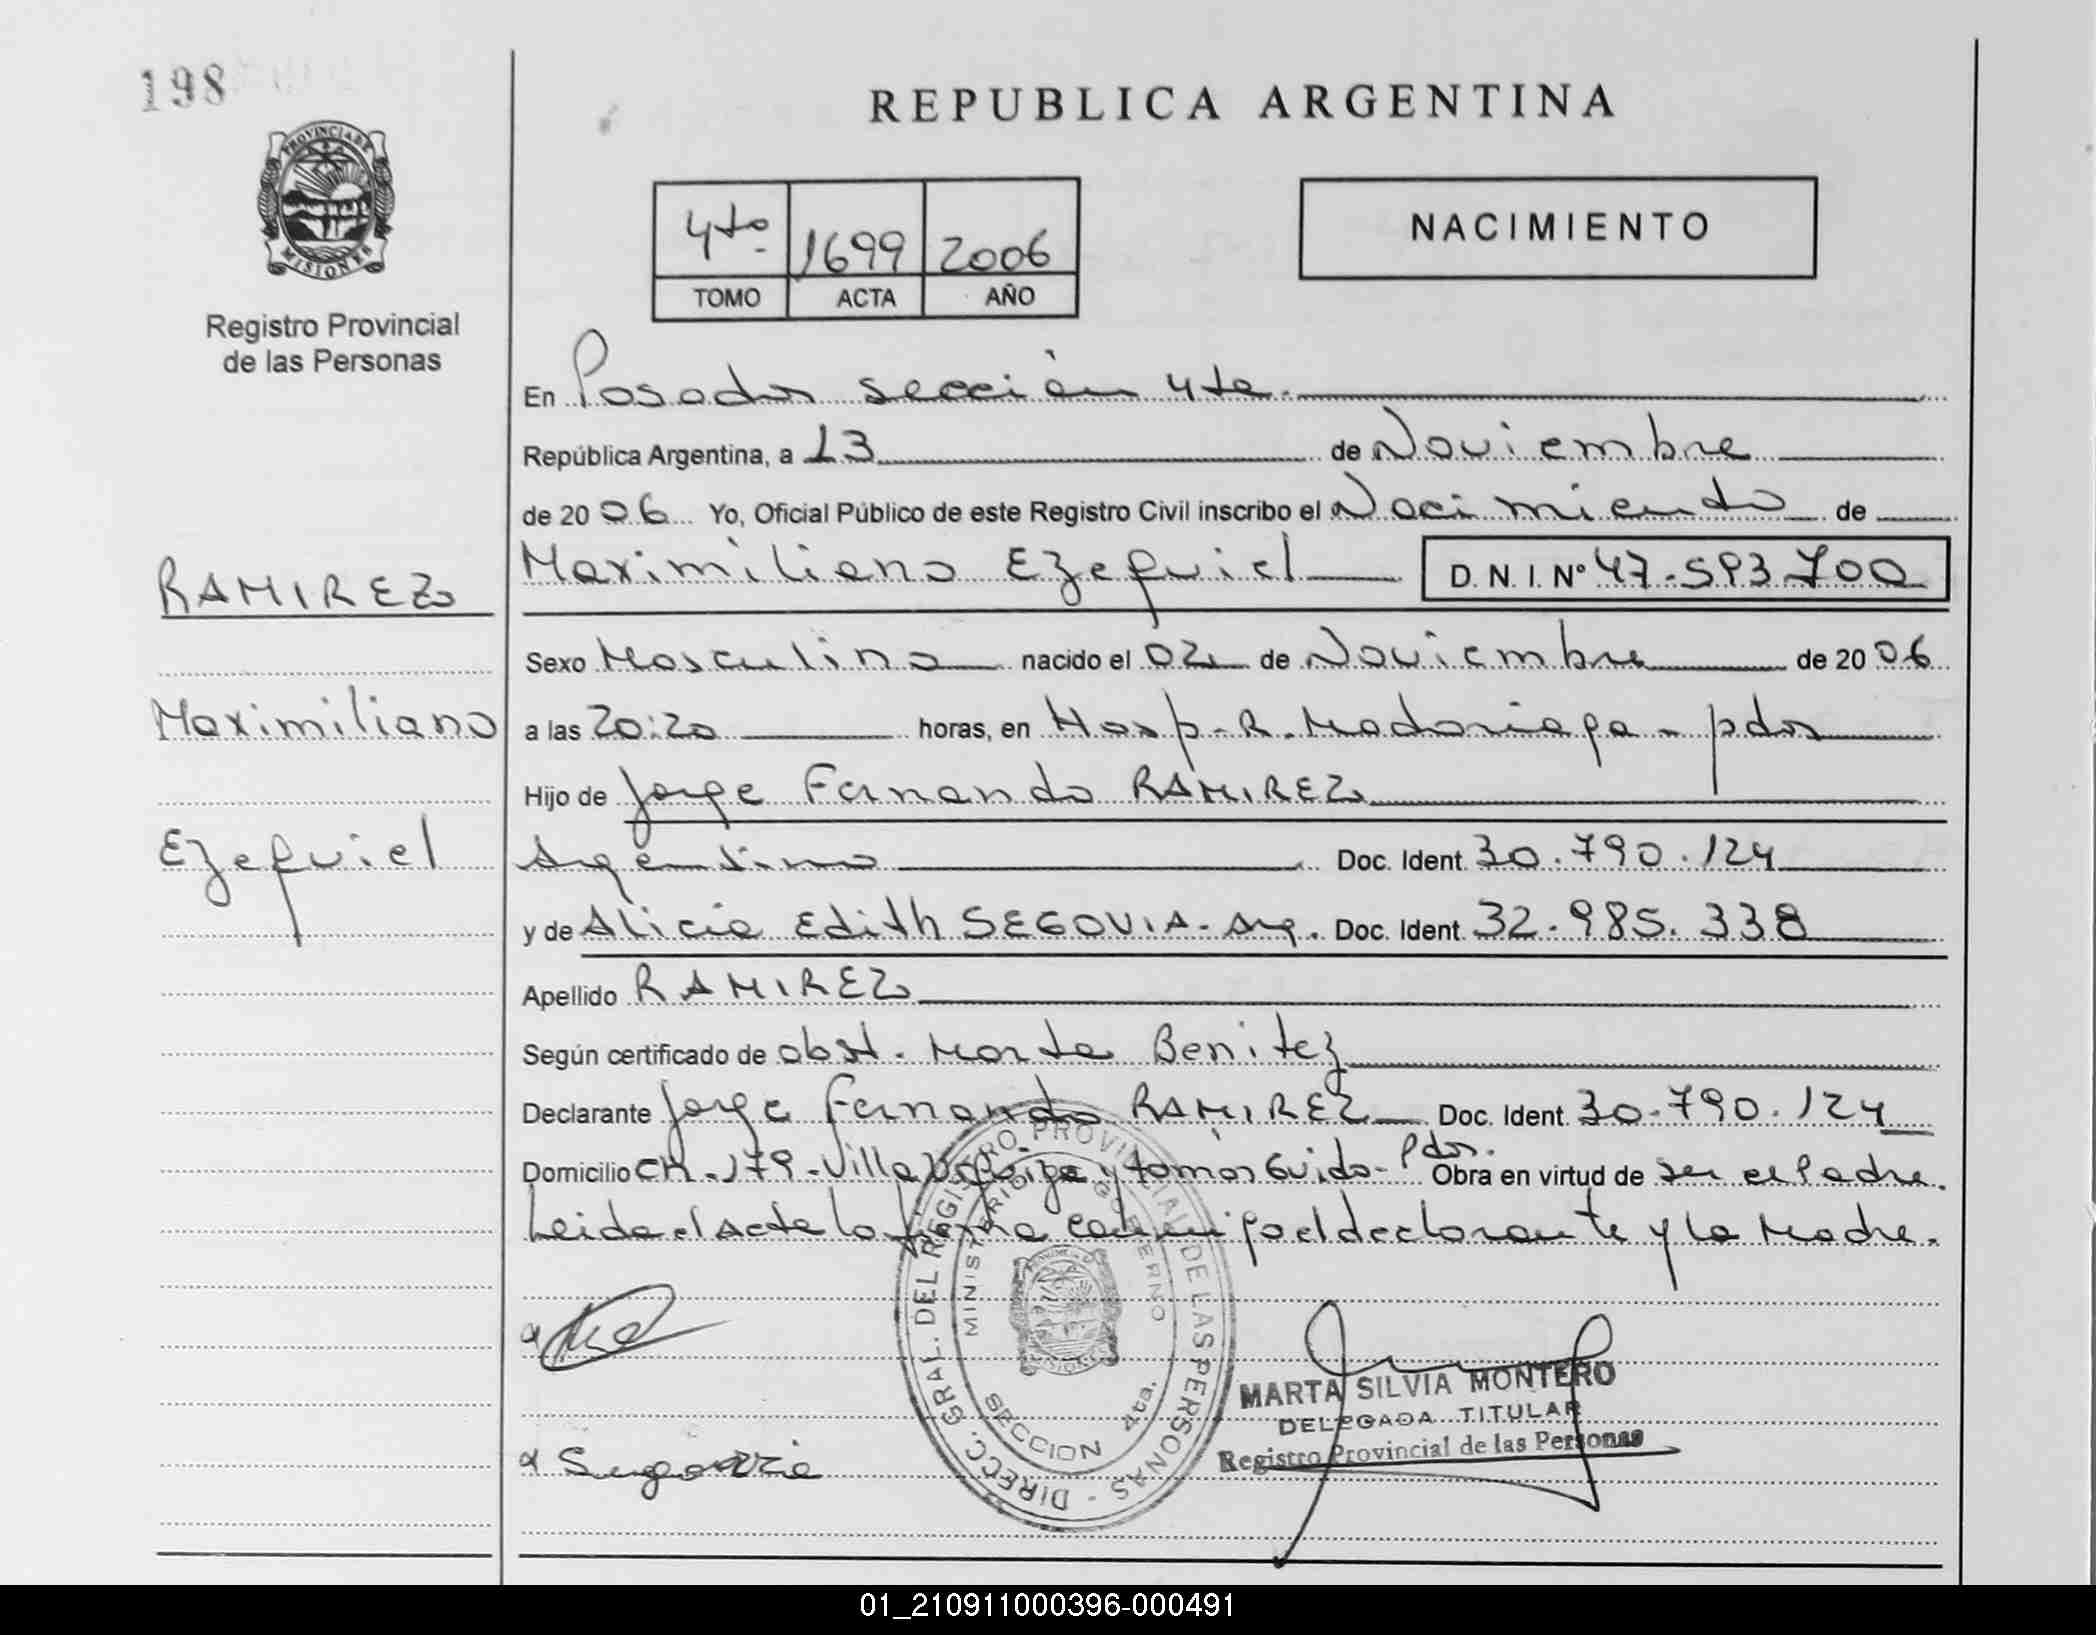 198
PROVINCIA DE
MISIONES
Registro Provincial
de las Personas
REPUBLICA ARGENTINA
4to 1699 2006
TOMO ACTA AÑO
NACIMIENTO
En Posadas sección 4ta.
República Argentina, a 13 de Noviembre
de 2006 Yo, Oficial Público de este Registro Civil inscribo el Nacimiento de
RAMIREZ
Maximiliano Ezequiel D.N.I. Nº 47.593.700
Sexo Masculino nacido el 02 de Noviembre de 2006
Maximiliano
a las 20:20 horas, en Hosp. R. Madariaga - pdas
Hijo de Jorge Fernando RAMIREZ
Ezequiel
Argentino Doc. Ident. 30.790.124
y de Alicia Edith SEGOVIA - Arg. Doc. Ident. 32.985.338
Apellido RAMIREZ
Según certificado de obst. Marta Benitez
Declarante Jorge Fernando RAMIREZ Doc. Ident. 30.790.124
Domicilio CH. 179 - Villa y tomas Guido - Pdas. Obra en virtud de ser el Padre.
Leida el Acta la firma conmigo el declarante y la Madre.
DIRECC. GRAL. DEL REGISTRO PROVINCIAL DE LAS PERSONAS -
MINISTERIO DE GOBIERNO
SECCION 4ta.
MARTA SILVIA MONTERO
DELEGADA TITULAR
Registro Provincial de las Personas
01_210911000396-000491